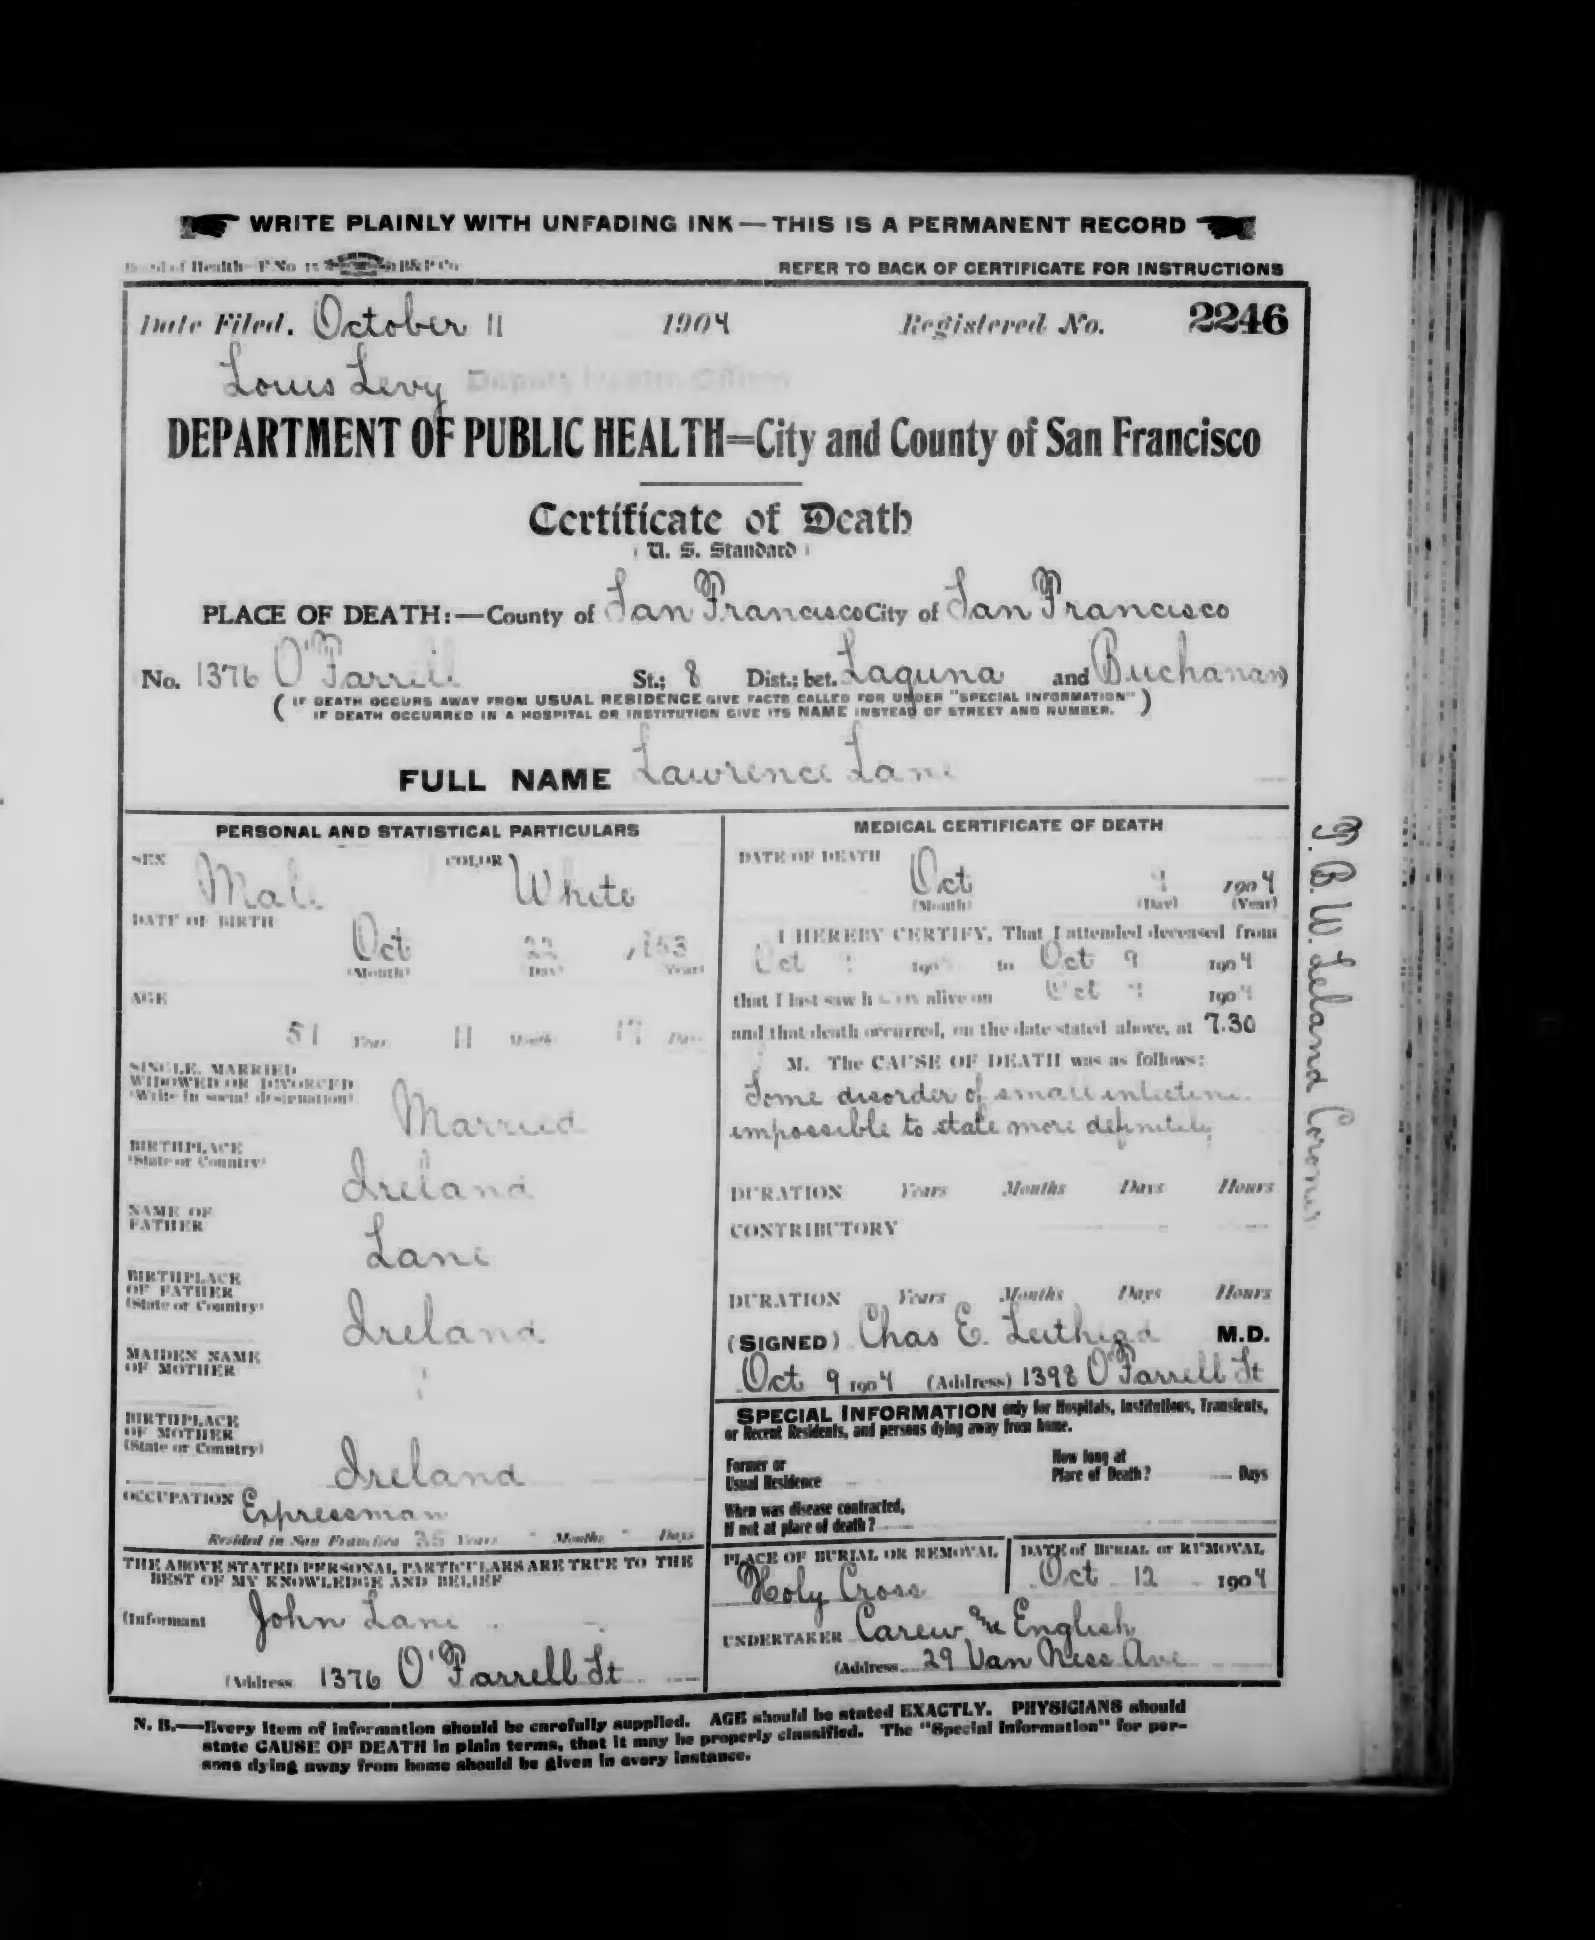 WRITE PLAINLY WITH UNFADING INK — THIS IS A PERMANENT RECORD
Board of Health—F No 15 B&P Co
REFER TO BACK OF CERTIFICATE FOR INSTRUCTIONS
Date Filed. October 11 1904 Registered No. 2246
Louis Levy Deputy Health Officer
DEPARTMENT OF PUBLIC HEALTH=City and County of San Francisco
Certificate of Death
( U. S. Standard )
PLACE OF DEATH:—County of San Francisco City of San Francisco
No. 1376 O'Farrell St.; 8 Dist.; bet. Laguna and Buchanan
( IF DEATH OCCURS AWAY FROM USUAL RESIDENCE GIVE FACTS CALLED FOR UNDER "SPECIAL INFORMATION" )
IF DEATH OCCURRED IN A HOSPITAL OR INSTITUTION GIVE ITS NAME INSTEAD OF STREET AND NUMBER.
FULL NAME Lawrence Lane
PERSONAL AND STATISTICAL PARTICULARS
SEX Male COLOR White
DATE OF BIRTH
Oct 22
(Month) (Day) (Year)
AGE
51 Years 11 Months 17 Days
SINGLE, MARRIED
WIDOWED OR DIVORCED
(Write in social designation)
Married
BIRTHPLACE
(State or Country)
Ireland
NAME OF
FATHER
Lane
BIRTHPLACE
OF FATHER
(State or Country)
Ireland
MAIDEN NAME
OF MOTHER
BIRTHPLACE
OF MOTHER
(State or Country)
Ireland
OCCUPATION Expressman
Resided in San Francisco 35 Years - Months - Days
THE ABOVE STATED PERSONAL PARTICULARS ARE TRUE TO THE
BEST OF MY KNOWLEDGE AND BELIEF
(Informant John Lane
(Address 1376 O'Farrell St
MEDICAL CERTIFICATE OF DEATH
DATE OF DEATH
Oct 9 1904
(Month) (Day) (Year)
I HEREBY CERTIFY, That I attended deceased from
Oct 190 to Oct 9 1904
that I last saw h im alive on Oct 9 1904
and that death occurred, on the date stated above, at 7.30
M. The CAUSE OF DEATH was as follows:
Some disorder of small intestine.
impossible to state more definitely
DURATION Years Months Days Hours
CONTRIBUTORY
DURATION Years Months Days Hours
(SIGNED) Chas E. Leithead M.D.
Oct 9 1904 (Address) 1398 O'Farrell St
SPECIAL INFORMATION only for Hospitals, Institutions, Transients,
or Recent Residents, and persons dying away from home.
Former or
Usual Residence
How long at
Place of Death? Days
When was disease contracted,
If not at place of death?
PLACE OF BURIAL OR REMOVAL
Holy Cross
DATE of BURIAL or REMOVAL
Oct 12 1904
UNDERTAKER Carew and English
(Address 29 Van Ness Ave
N. B.—Every item of information should be carefully supplied. AGE should be stated EXACTLY. PHYSICIANS should
state CAUSE OF DEATH in plain terms, that it may be properly classified. The "Special Information" for per-
sons dying away from home should be given in every instance.
T. B. W. Leland Coroner